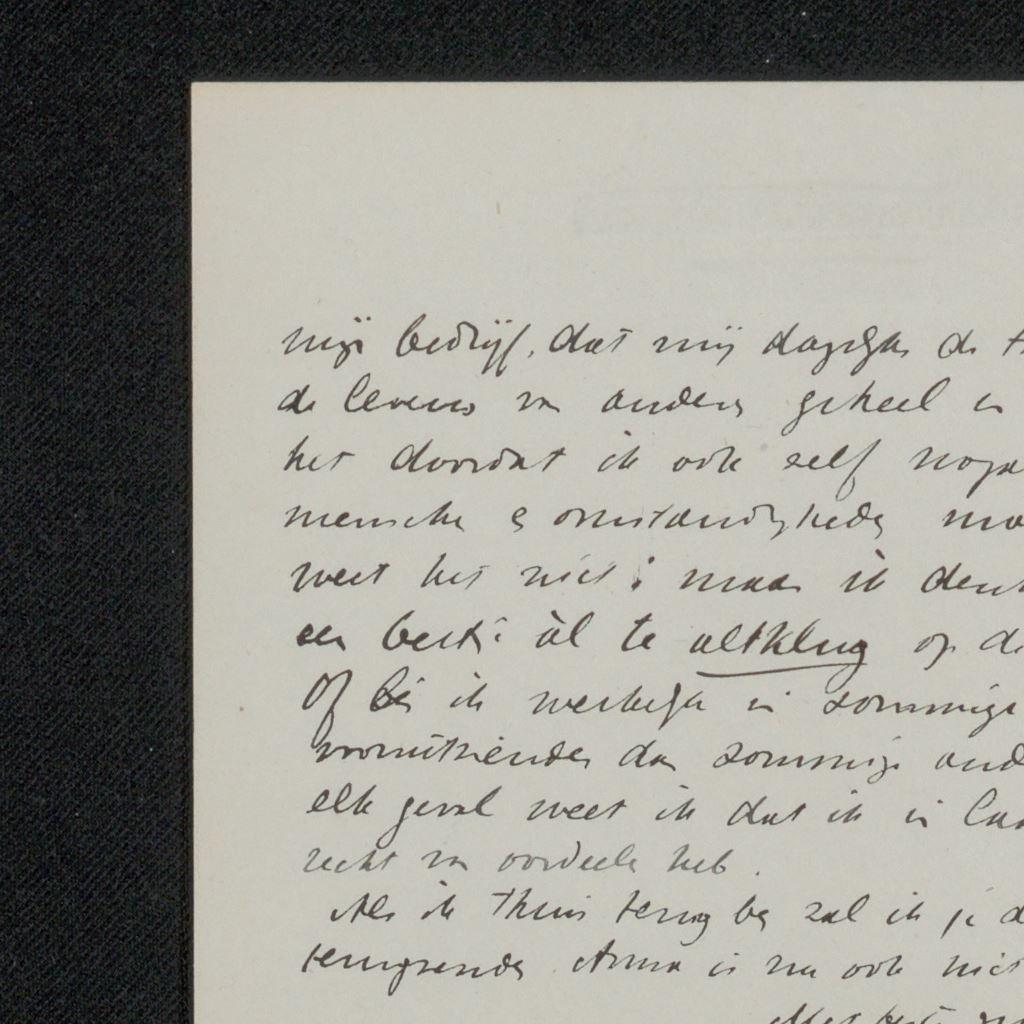 mijn bedrijf, dat mij dagelijks de
de levens van anderen geheel en
het doordat ik ook zelf noga
menschen en omstandigheden
weet het niet; maar ik denk
een beetje àl te altklug op de
Of ben ik werkelijk in sommige
vooruitziender dan sommige ande
elk geval weet ik dat ik in
recht van oordeelen heb.
Als ik thuis terug ben zal ik je d
terugzenden. Anna is nu ook niet